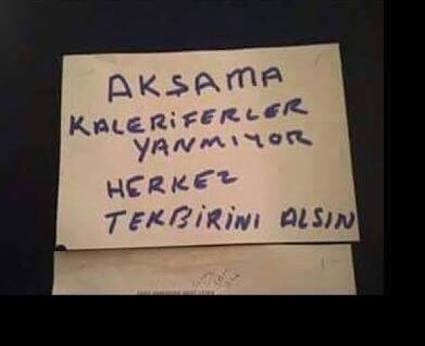 AKŞAMA
KALERİFERLER
YANMIYOR
HERKEZ
TEKBİRİNİ ALSIN